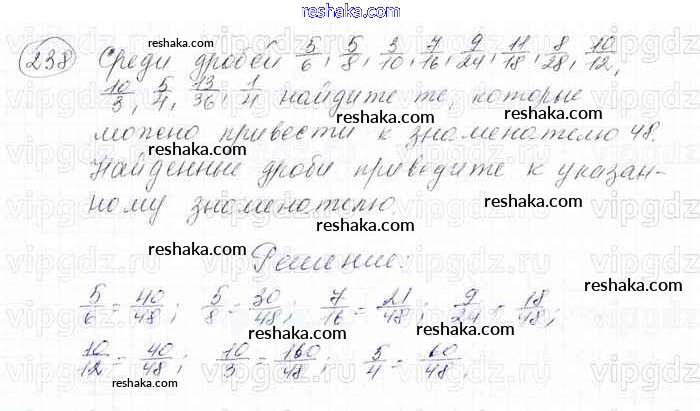 reshaka.com
238 Среди дробей 5/6, 5/8, 3/10, 7/16, 9/24, 11/18, 8/28, 10/12,
10/3, 5/4, 13/36, 1/4 найдите те, которые
можно привести к знаменателю 48.
Найденные дроби приведите к указан-
ному знаменателю.
Решение:
5/6 = 40/48; 5/8 = 30/48; 7/16 = 21/48; 9/24 = 18/48;
10/12 = 40/48; 10/3 = 160/48; 5/4 = 60/48.